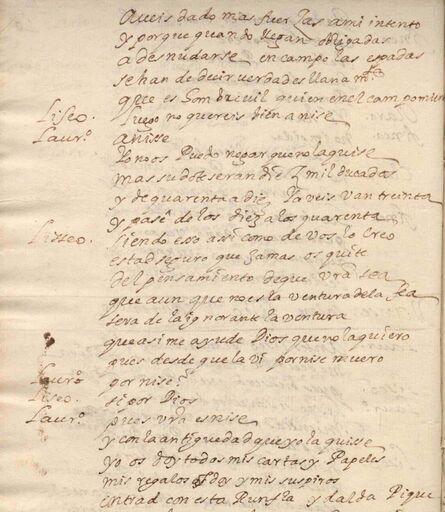 Aveis dado mas fuerças a mi intento
y porque quando llegan obligadas
a desnudarse en campo las espadas
se han de decir verdades llanamte
que es hombre vil quien en el campo miente
Liseo. luego no quereis bien a nise
Laur.º a nise
Yo no os Puedo negar que no la quise
mas su dote seran diez mil ducados
y de quarenta a diez Ya veis van treinta
y pase de los diez a los quarenta
Lisseo. siendo eso assi como de vos lo creo
estad seguro que jamas os quite
del pensamiento de que vra sea
que aun que no es la ventura de la fea
sera de la ignorante la ventura
que asi me ayude Dios que no la quiero
pues desde que la vi por nise muero
Laurº por nise?
Liseo. si por Dios
Laur.º pues vra es nise
y con la antiguedad que yo la quisse
yo os doy todos mis cartas y Papeles
mis regalos doy y mis suspiros
entrad con esta Runfla y dalda Pique